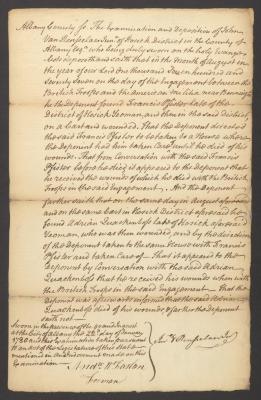 Albany County ss. The Examination and deposition of John
Van Rensselaer Junr. of Hosick District in the County of
Albany Esqr. who being duly sworn on the holy Evange-
lists deposeth and saith that in the Month of August in
the year of our Lord One thousand Seven hundred and
Seventy Seven on the day of the Engagement between the
British Troops and the american Troops near Bennington
he the Deponent found Francis Pfister late of the
District of Hosick Yeoman, and then in the said District,
on a Cart and wounded. That the Deponent directed
the said Francis Pfister to be taken to a House where
the Deponent had him taken Care of until he died of his
wounds. That from Conversation with the said Francis
Pfister before he died it appeared to the Deponent that
he received the wounds of which he died with the British
Troops in the said Engagement. And the Deponent
further saith that on the same day in August aforesaid
and on the same Cart in Hosick District aforesaid he
found Adrian Quackenbos late of Hosick aforesaid
Yeoman, who was then wounded, and by the direction
of the Deponent taken to the same House with Francis
Pfister and taken Care of. That it appeared to the
Deponent by Conversation with the said Adrian
Quackenbos that he received his wounds when with
the British Troops in the said Engagement. That the
Deponent was afterwards informed that the said Adrian
Quackenbos died of his wounds, & further the Deponent
saith not.
Sworn in the presence of the grand Inquest
at the City of Albany the 22d. day of January
1780 and this Examination taken pursuant
to an act of the Legislature of this State
mentioned in the Indictment made on this
Examination
Jno V Renselaer
foreman